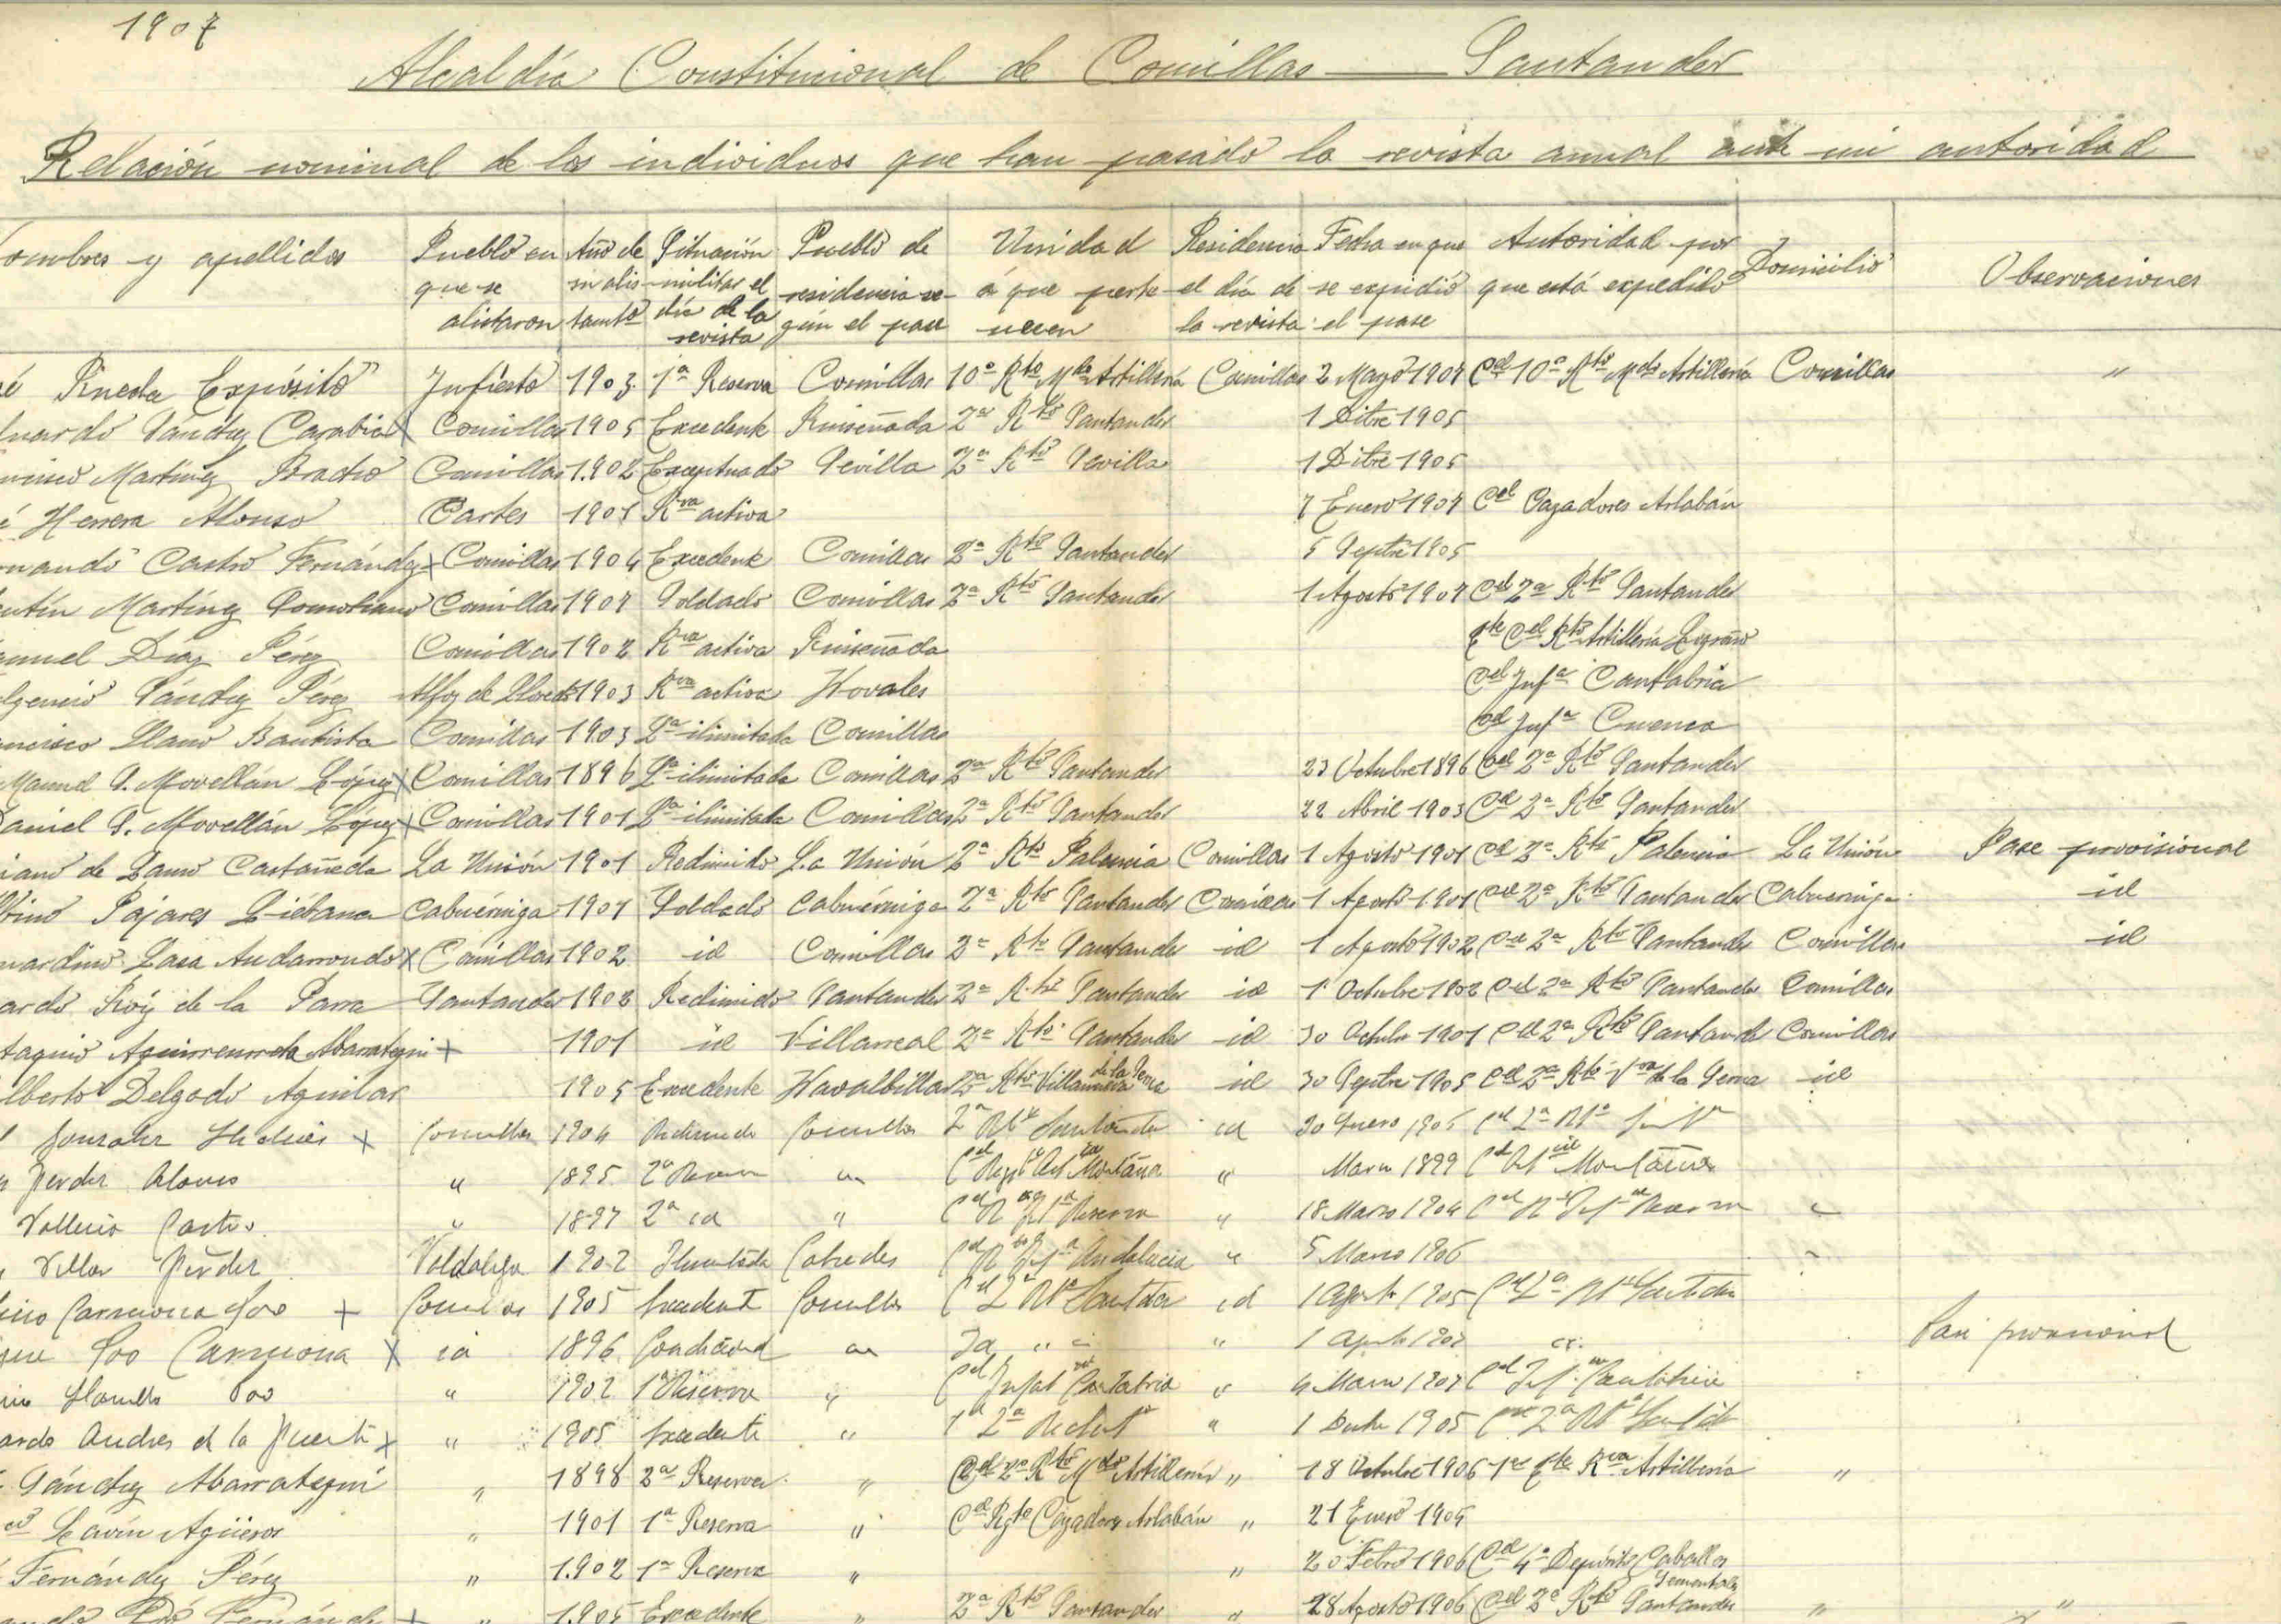 1907
Alcaldía Constitucional de Comillas — Santander
Relación nominal de los individuos que han pasado la revista anual ante mi autoridad
ombres y apellidos Pueblo en que se alistaron Año de su alistamto Situación militar el día de la revista Pueblo de residencia según el pase Unidad á que pertenecen Residencia el día de la revista Fecha en que se expidió el pase Autoridad por que está expedido Domicilio Observaciones
é Pineda Expósito Infiesto 1903 1ª Reserva Comillas 10º Rto Mdo Artillería Comillas 2 Mayo 1907 Cel 10º Rto Mdo Artillería Comillas "
uardo Sánchez Carabia x Comillas 1905 Excedente Ruiseñada 2ª Rto Santander 1 Dibre 1905
Martínez Comillas 1.902 Exceptuado Sevilla 2ª Rto Sevilla 1 Dibre 1905
é Herrera Alonso Cartes 1901 Rva activa 7 Enero 1907 Cel Cazadores Arlabán
nando Castro Fernández x Comillas 1904 Excedente Comillas 2ª Rto Santander 5 Septre 1905
utín Martínez Comillas 1907 Soldado Comillas 2ª Rto Santander 1 Agosto 1907 Cel 2ª Rto Santander
anuel Díaz Pérez Comillas 1902 Rva activa Ruiseñada Cel Rto Artillería Logroño
lgencio Sánchez Pérez Alfoz de Lloredo 1903 Rva activa Novales Cel Infa Cantabria
ancisco Llano Bautista Comillas 1903 La ilimitada Comillas Cel Infa Cuenca
Manuel S. Movellán López x Comillas 1896 La ilimitada Comillas 2ª Rto Santander 23 Octubre 1896 Cel 2ª Rto Santander
aniel S. Movellán López x Comillas 1901 La ilimitada Comillas 2ª Rto Santander 22 Abril 1903 Cel 2ª Rto Santander
iano de Lamo Castañeda La Unión 1901 Redimido La Unión 2ª Rto Palencia Comillas 1 Agosto 1901 Cel 2ª Rto Palencia La Unión Pase provisional
bino Pajares Liébana Cabuérniga 1901 Soldado Cabuérniga 2ª Rto Santander Comillas 1 Agosto 1901 Cel 2ª Rto Santander Cabuerniga id
nardino Lasa Andarrondo x Comillas 1902 id Comillas 2ª Rto Santander id 1 Agosto 1902 Cel 2ª Rto Santander Comillas id
ardo Roiz de la Parra Santander 1902 Redimido Santander 2ª Rto Santander id 1 Octubre 1902 Cel 2ª Rto Santander Comillas
taquio Abarrategui + 1901 id Villarreal 2ª Rto Santander id 30 Octubre 1901 Cel 2ª Rto Santander Comillas
lberto Delgado Aguilar 1905 Excedente Navalvillar 2ª Rto Villanueva de la Serena id 30 Septre 1905 Cel 2ª Rto Vva de la Serena id
González x Comillas 1904 Redimido Comillas 2ª Rto Santander id 30 Enero 1905 Cel 2ª Rto
Alonso " 1895 2ª Reserva " Cel Regto Art Montaña " Marzo 1899 Cel Art Montaña
Vallecio Castro " 1897 2ª id " Reserva " 18 Marzo 1904
Villar Valdáliga 1902 Ilimitada Cabredes Andalucía " 5 Marzo 1906
Carmona Poo + Comillas 1905 Excedente Comillas Cel 2ª Rto Santder id 1 Agosto 1905 Cel 2ª Rto Santder
que Poo Carmona x id 1896 Condicional " Id " " " 1 Agosto Pase provisional
Poo " 1902 1ª Reserva " Cel Infat Cantabria " 4 Marzo 1907 Cel Inf Cantabria
ardo Andrés de la Puente x " 1905 Excedente " 2ª Reclut " 1 Dibre 1905 2ª Rto Santder
Sánchez Abarrategui " 1898 2ª Reserva " Cel 2º Rto Mdo Artillería " 18 Octubre 1906 Rva Artillería "
Lavín Agüeros " 1901 1ª Reserva " Cel Rgto Cazadores Arlabán " 21 Enero 1905
Fernández Pérez " 1.902 1ª Reserva " " 20 Febro 1906 Cel 4º Depósito Caballos Sementales
1.905 Excedente " 2ª Rto Santander " 28 Agosto 1906 Cel 2ª Rto Santander " "